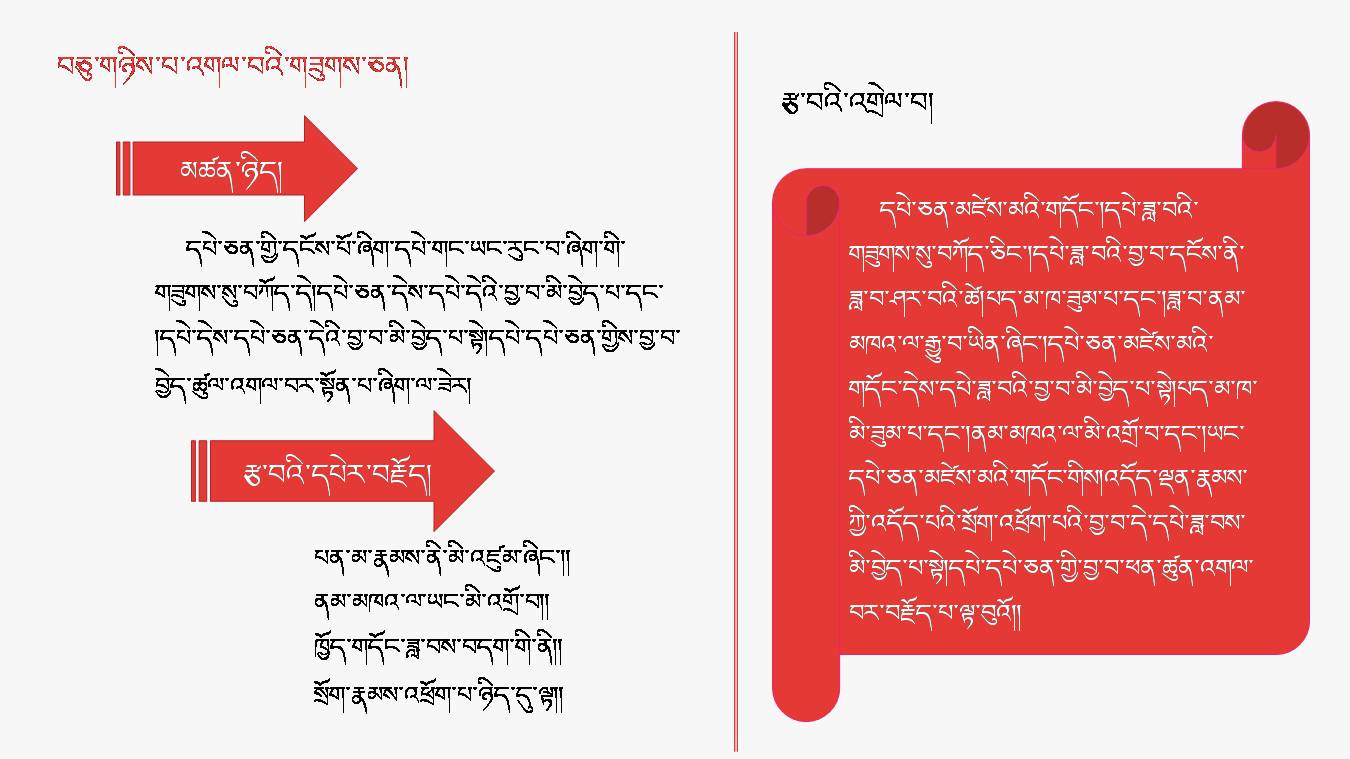 བཅུ་གཉིས་པ་འགལ་བའི་གཟུགས་ཅན།
མཚན་ཉིད།
དཔེ་ཅན་གྱི་དངོས་པོ་ཞིག་དཔེ་གང་ཡང་རུང་བ་ཞིག་གི་
གཟུགས་སུ་བཀོད་དེ།དཔེ་ཅན་དེས་དཔེ་དེའི་བྱ་བ་མི་བྱེད་པ་དང་
།དཔེ་དེས་དཔེ་ཅན་དེའི་བྱ་བ་མི་བྱེད་པ་སྟེ།དཔེ་དཔེ་ཅན་གྱིས་བྱ་བ་
བྱེད་ཚུལ་འགལ་བར་སྟོན་པ་ཞིག་ལ་ཟེར།
རྩ་བའི་དཔེར་བརྗོད།
པན་མ་རྣམས་ནི་མི་འཛུམ་ཞིང་།།
ནམ་མཁའ་ལ་ཡང་མི་འགྲོ་བ།།
ཁྱོད་གདོང་ཟླ་བས་བདག་གི་ནི།།
སྲོག་རྣམས་འཕྲོག་པ་ཉིད་དུ་ལྟ།།
རྩ་བའི་འགྲེལ་བ།
དཔེ་ཅན་མཛེས་མའི་གདོང་།དཔེ་ཟླ་བའི་
གཟུགས་སུ་བཀོད་ཅིང་།དཔེ་ཟླ་བའི་བྱ་བ་དངོས་ནི་
ཟླ་བ་ཤར་བའི་ཚེ།པད་མ་ཁ་ཟུམ་པ་དང་།ཟླ་བ་ནམ་
མཁའ་ལ་རྒྱུ་བ་ཡིན་ཞིང་།དཔེ་ཅན་མཛེས་མའི་
གདོང་དེས་དཔེ་ཟླ་བའི་བྱ་བ་མི་བྱེད་པ་སྟེ།པད་མ་ཁ་
མི་ཟུམ་པ་དང་།ནམ་མཁའ་ལ་མི་འགྲོ་བ་དང་།ཡང་
དཔེ་ཅན་མཛེས་མའི་གདོང་གིས།འདོད་ལྡན་རྣམས་
ཀྱི་འདོད་པའི་སྲོག་འཕྲོག་པའི་བྱ་བ་དེ་དཔེ་ཟླ་བས་
མི་བྱེད་པ་སྟེ།དཔེ་དཔེ་ཅན་གྱི་བྱ་བ་ཕན་ཚུན་འགལ་
བར་བརྗོད་པ་ལྟ་བུའོ།།